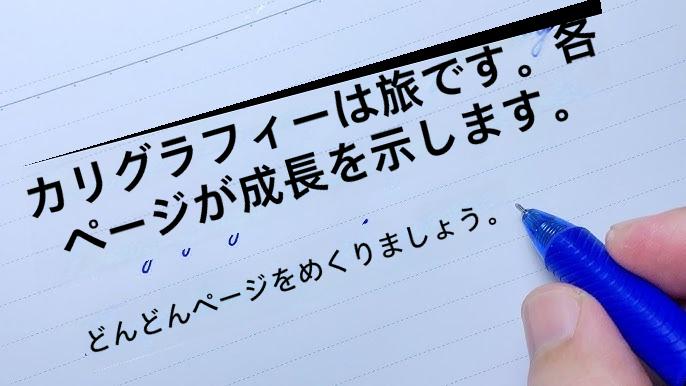 カリグラフィーは旅です。各
ページが成長を示します。
どんどんページをめくりましょう。